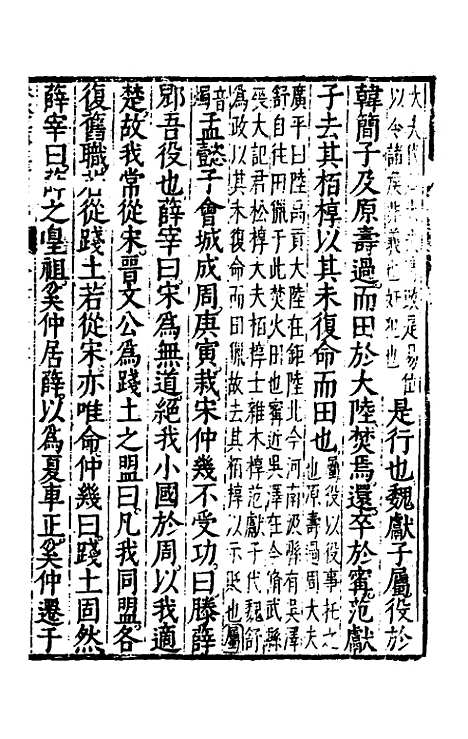 大夫代政是易位
以令諸侯非義也奸犯也
是行也魏獻子屬役於
韓簡子及原壽過而田於大陸焚焉還卒於甯范獻
子去其栢椁以其未復命而田也
屬役以役事托之
也原壽過周大夫
廣平曰陸禹貢大陸在鉅陸北今河南汲縣有吳澤
舒自往田獵于此焚火田也甯近吳澤在今脩武縣
喪大記君松椁大夫栢椁士雜木椁范獻子代魏舒
為政以其未復命而田獵故去其栢椁以示貶也屬
音
燭
孟懿子會城成周庚寅栽宋仲幾不受功曰滕薛
郳吾役也薛宰曰宋為無道絕我小國於周以我適
楚故我常從宋晉文公為踐土之盟曰凡我同盟各
復舊職若從踐土若從宋亦唯命仲幾曰踐土固然
薛宰曰薛之皇祖奚仲居薛以為夏車正奚仲遷于